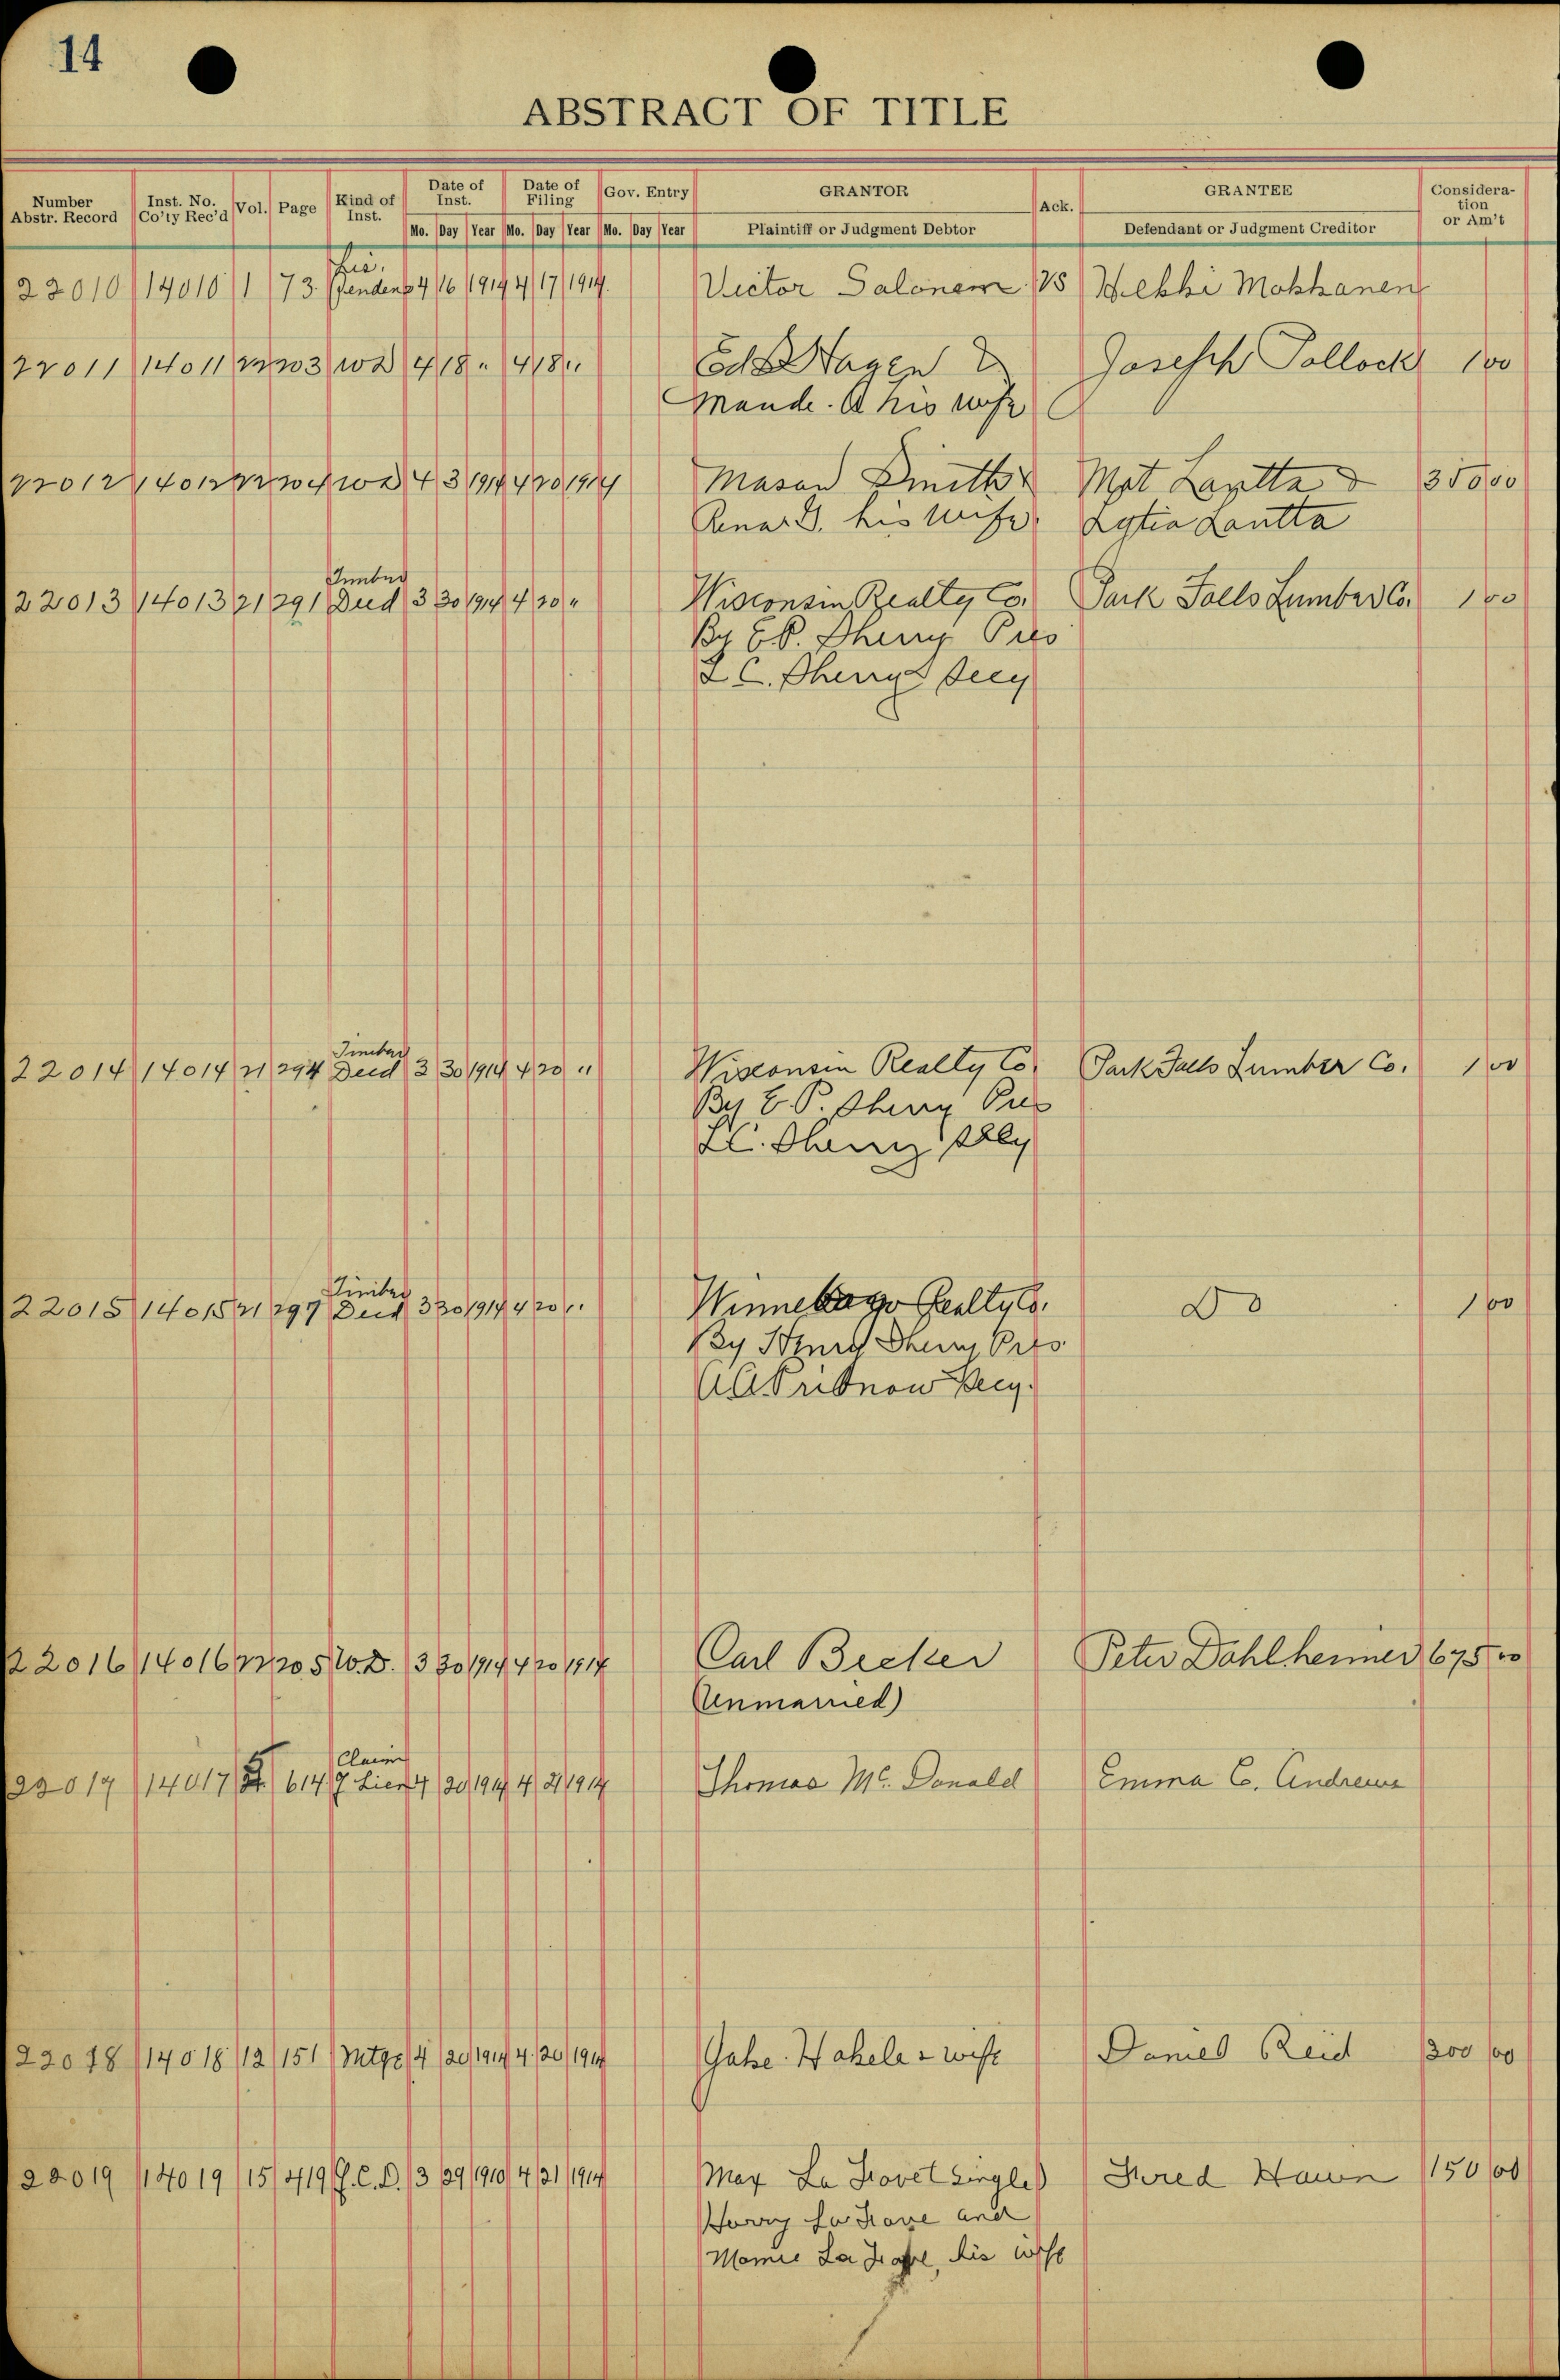 14
ABSTRACT OF TITLE
Number Abstr. Record Inst. No. Co'ty Rec'd Vol. Page Kind of Inst. Date of Inst. Date of Filing Gov. Entry GRANTOR Ack. GRANTEE Consideration or Am't
Mo. Day Year Mo. Day Year Mo. Day Year Plaintiff or Judgment Debtor Defendant or Judgment Creditor
22010 14010 1 73 Lis. Pendens 4 16 1914 4 17 1914 Victor Salonen VS Hilkki Mokkanen
22011 14011 22 203 WD 4 18 " 4 18 " Ed Hagen & Joseph Pollock 1 00
Maude. A his wife
22012 14012 22 204 WD 4 3 1914 4 20 1914 Mason Smith & Mat Lantta & 350 00
his wife. Lytia Lantta
22013 14013 21 291 Timber Deed 3 30 1914 4 20 " Wisconsin Realty Co. Park Falls Lumber Co. 1 00
By E.P. Sherry Pres
L C. Sherry Secy
22014 14014 21 294 Timber Deed 3 30 1914 4 20 " Wisconsin Realty Co. Park Falls Lumber Co. 1 00
By E.P. Sherry Pres
L C. Sherry Secy
22015 14015 21 297 Timber Deed 3 30 1914 4 20 " Winnebago Realty Co. Do 1 00
By Henry Sherry Pres
Pribnow Secy.
22016 14016 22 205 W.D. 3 30 1914 4 20 1914 Carl Becker Peter Dahlheimer 675 00
(Unmarried)
22017 14017 614 Claim Lien 4 20 1914 4 21 1914 Thomas Mc. Donald Emma C. Andrews
22018 14018 12 151 Mtge 4 20 1914 4 20 1914 Gabe Wakele & wife Daniel Reid 200 00
22019 14019 15 419 Q.C.D. 3 29 1910 4 21 1914 May La Trove (single) Fred Hawn 150 00
Harry La Trave and
Mamie La Trave, his wife